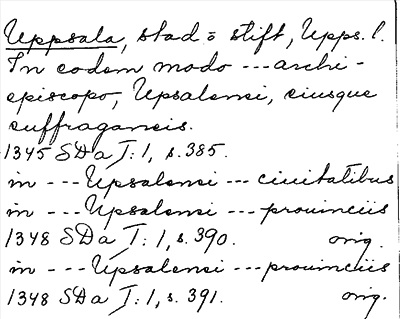 Uppsala, stad o stift, Upps. l.
In eodem modo --- archi-
episcopo, Upsalensi, eiusque
suffraganeis.
1345 SDa I: 1, s. 385.
in --- Upsalensi --- ciuitatibus
in --- Upsalensi --- prouinciis
1348 SDa I: 1, s. 390. orig.
in --- Upsalensi --- prouinciis
1348 SDa I: 1, s. 391. orig.